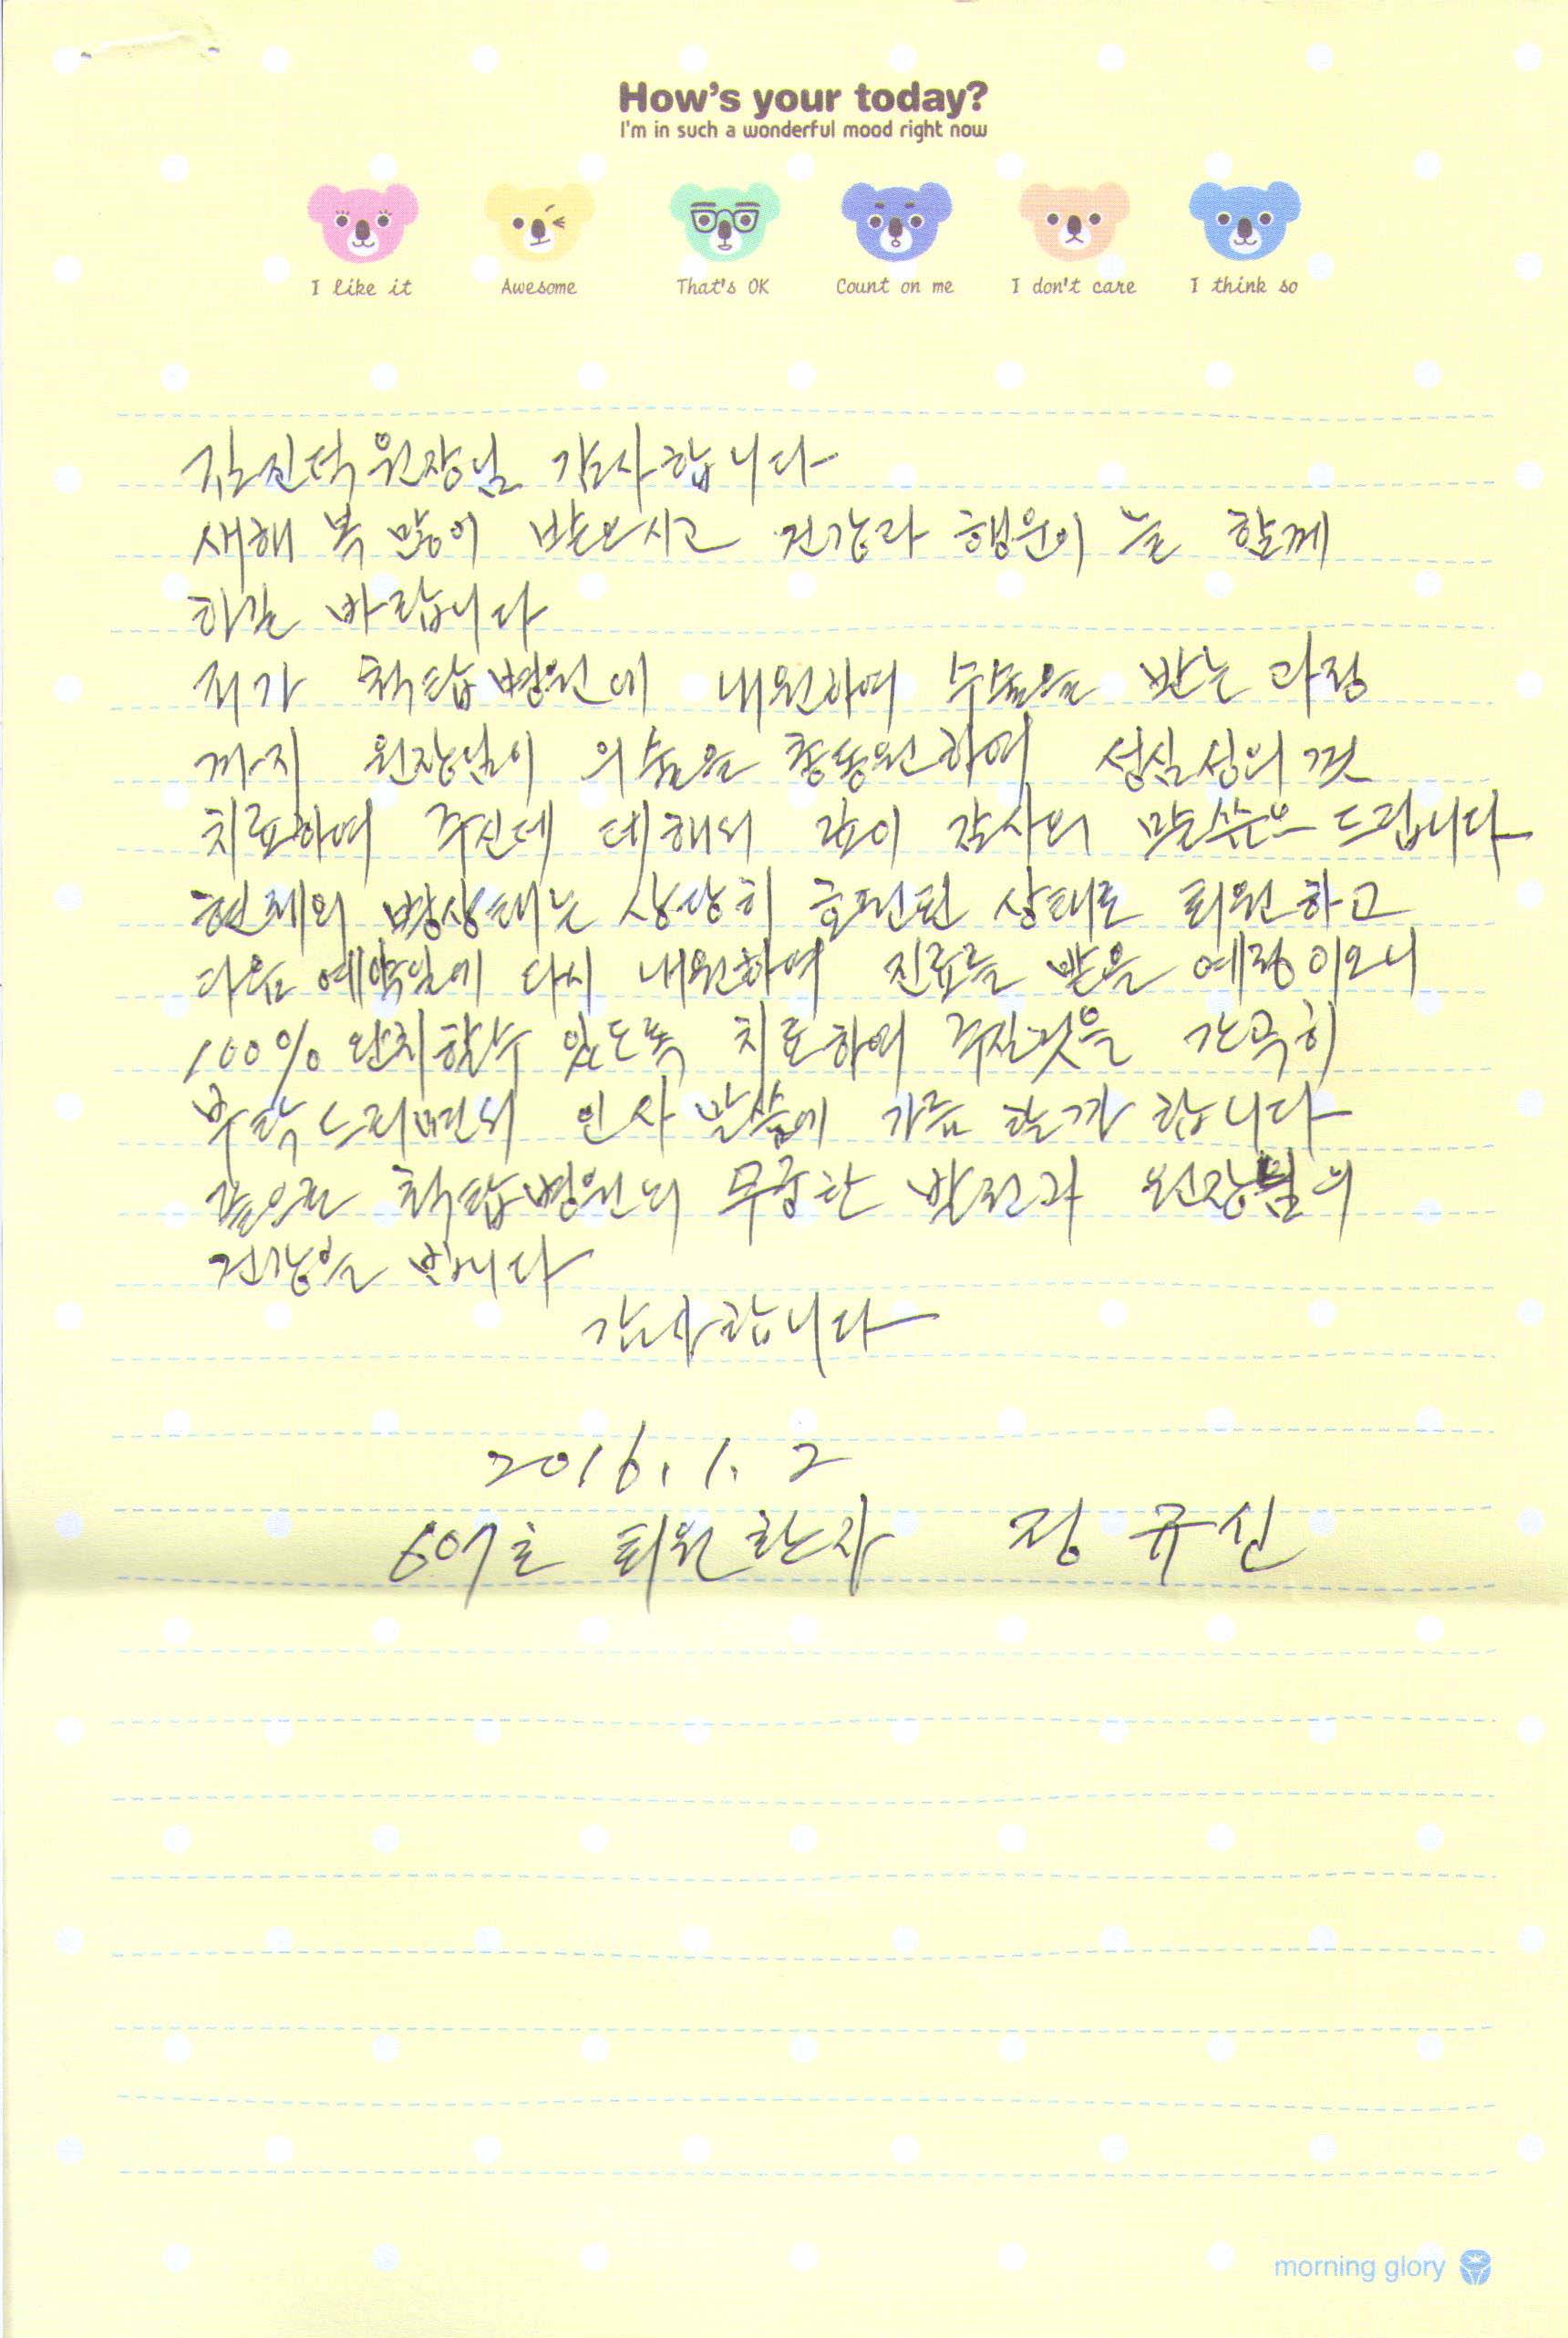 How's your today?
I'm in such a wonderful mood right now
I like it Awesome That's OK Count on me I don't care I think so
김진덕 원장님 감사합니다
새해 복 많이 받으시고 건강과 행운이 늘 함께
하길 바랍니다
저가 척탑병원에 내원하여 수술을 받는 과정
까지 원장님이 의술을 총동원하여 성심성의 껏
치료하여 주신데 대해서 깊이 감사의 말씀은 드립니다
현제의 병상태는 상당히 호전된 상태로 퇴원하고
다음 예약일에 다시 내원하여 진료를 받을 예정이오니
100% 완치할수 있도록 치료하여 주실것을 간곡히
부탁드리면서 인사 말씀에 가름 할까 합니다
끝으로 척탑병원의 무궁한 발전과 원장님의
건강을 빕니다
감사합니다
2016. 1. 2
607호 퇴원환자 정규신
morning glory